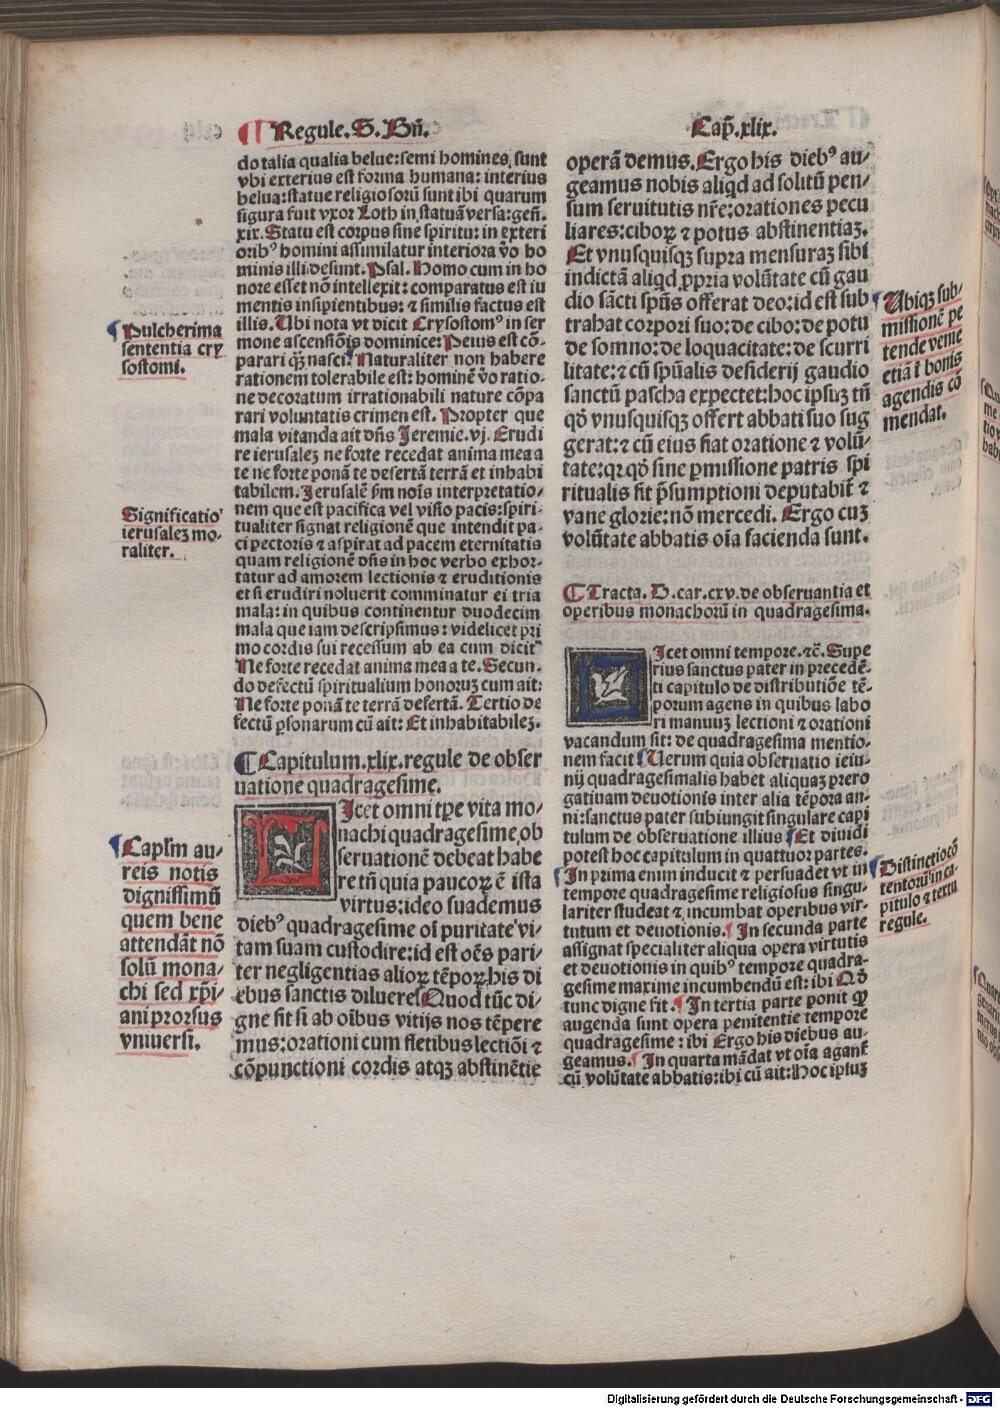 ¶ Regule. S. Bn̄.
Cap̄. xlix.
do talia qualia belue: semi homines sunt
vbi exterius est forma humana: interius
belua: statue religiosorū sunt ibi quarum
figura fuit vxor Loth in statuā versa: geñ.
xix. Statu est corpus sine spiritu: in exteri
oribꝰ homini assimilatur interiora v̄o ho
minis illi desunt. Psal. Homo cum in ho
nore esset nō intellexit: comparatus est iu
mentis insipientibus: ⁊ similis factus est
illis. Ubi nota vt dicit Crysostomꝰ in ser
mone ascensiōis dominice: Peius est cō-
parari qꝫ̄ nasci. Naturaliter non habere
rationem tolerabile est: hominē v̄o ratio-
ne decoratum irrationabili nature cōpa
rari voluntatis crimen est. Propter que
mala vitanda ait dn̄s Jeremie. vj. Erudi
re ierusalez ne forte recedat anima mea a
te ne forte ponā te desertā terrā et inhabi
tabilem. Jerusalē ẜm nois̄ interpretatio-
nem que est pacifica vel visio pacis: spiri-
tualiter signat religionē que intendit pa-
ci pectoris ⁊ aspirat ad pacem eternitatis
quam religionē dn̄s in hoc verbo exhor-
tatur ad amorem lectionis ⁊ eruditionis
et si erudiri noluerit comminatur ei tria
mala: in quibus continentur duodecim
mala que iam descripsimus: videlicet pri
mo cordis sui recessum ab ea cum dicit
Ne forte recedat anima mea a te. Secun-
do defectū spiritualium honoruz cum ait:
Ne forte ponā te terrā desertā. Tertio de
fectū ꝑsonarum cū ait: Et inhabitabilez.
¶ Capitulum. xlix. regule de obser
uatione quadragesime.
LIcet omni tꝑe vita mo-
nachi quadragesime ob
seruationē debeat habe
re tn̄ quia paucoꝝ ē ista
virtus: ideo suademus
diebꝰ quadragesime oī puritate vi-
tam suam custodire: id est oēs pari-
ter negligentias alioꝝ tēpoꝝ his di
ebus sanctis diluere. Quod tūc di-
gne fit si ab oībus vitijs nos tēpere
mus: orationi cum fletibus lectiōi ⁊
cōpunctioni cordis atqꝫ abstinētie
Pulcherima
sententia cry
sostomi.
Significatio
ierusalez mo-
raliter.
Capl̄m au-
reis notis
dignissimū
quem bene
attendāt nō
solū mona-
chi sed xp̄i-
ani prorsus
vniuersi.
operā demus. Ergo his diebꝰ au-
geamus nobis aliqd ad solitū pen-
sum seruitutis nr̄e: orationes pecu
liares: ciboꝝ ⁊ potus abstinentiaz.
Et vnusquisqꝫ supra mensuraz sibi
indictā aliqd ꝓpria volūtate cū gau
dio sācti spūs offerat deo: id est sub
trahat corpori suo: de cibo: de potu
de somno: de loquacitate: de scurri
litate: ⁊ cū spūalis desiderij gaudio
sanctū pascha expectet: hoc ipsuz tn̄
qō vnusquisque offert abbati suo sug
gerat: ⁊ cū eius fiat oratione ⁊ volū-
tate: qꝛ qō sine ꝑmissione patris spi
ritualis fit p̄sumptioni deputabit̄ ⁊
vane glorie: nō mercedi. Ergo cuz
volūtate abbatis oīa facienda sunt.
¶ Tracta. D. car. cxv. de obseruantia et
operibus monachorū in quadragesima.
LIcet omni tempore. ⁊c̄. Supe
rius sanctus pater in precedē-
ti capitulo de distributiōe tē-
porum agens in quibus labo
ri manuuz lectioni ⁊ orationi
vacandum sit: de quadragesima mentio-
nem facit. Uerum quia obseruatio ieiu-
nij quadragesimalis habet aliquaz prero
gatiuam deuotionis inter alia tēpora an-
ni: sanctus pater subiungit singulare capi
tulum de obseruatione illius. Et diuidi
potest hoc capitulum in quattuor partes.
In prima enim inducit ⁊ persuadet vt in
tempore quadragesime religiosus singu-
lariter studeat ⁊ incumbat operibus vir-
tutum et deuotionis. In secunda parte
assignat specialiter aliqua opera virtutis
et deuotionis in quibꝰ tempore quadra-
gesime maxime incumbendū est: ibi Qō
tunc digne fit. In tertia parte ponit qꝙ
augenda sunt opera penitentie tempore
quadragesime: ibi Ergo his diebus au-
geamus. In quarta mādat vt oīa agant̄
cū volūtate abbatis: ibi cū ait: Hoc ipsuz
Ubiqꝫ sub-
missionē pe
tende venie
etiā ī bonis
agendis cō
mendat.
Distinctio cō
tentorū in ca-
pitulo ⁊ textu
regule.
Digitalisierung gefördert durch die Deutsche Forschungsgemeinschaft - DFG